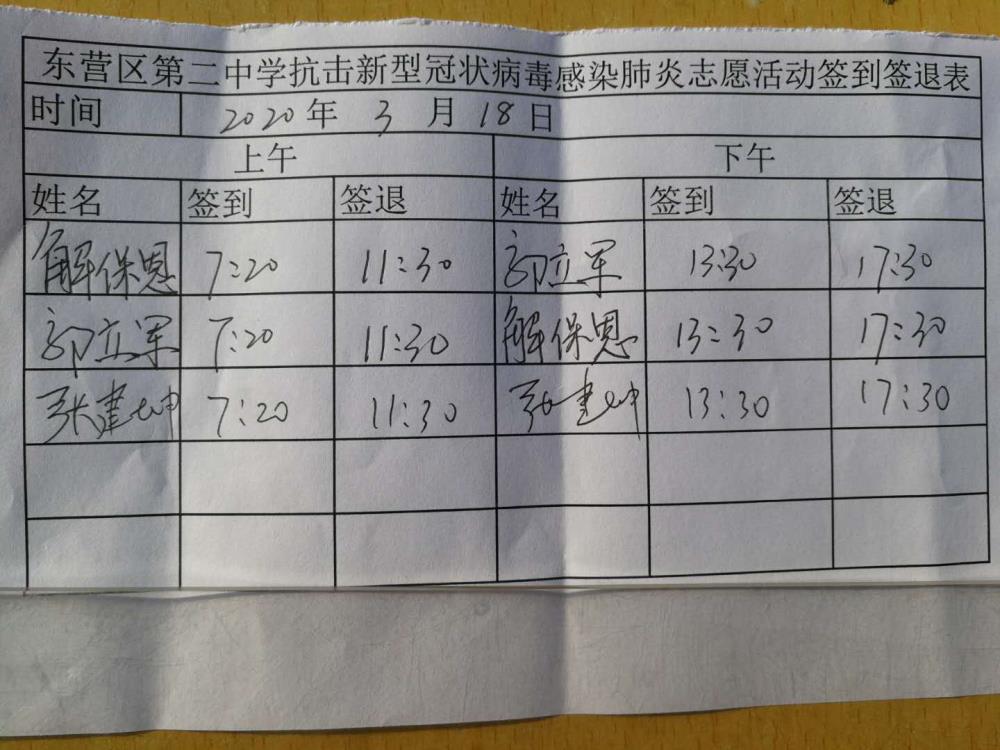 东营区第二中学抗击新型冠状病毒感染肺炎志愿活动签到签退表
时间 2020年 3 月 18 日
上午 下午
姓名 签到 签退 姓名 签到 签退
解保恩 7:20 11:30 郭立军 13:30 17:30
郭立军 7:20 11:30 解保恩 13:30 17:30
张建坤 7:20 11:30 张建坤 13:30 17:30